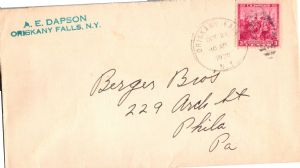 A. E. DAPSON
ORISKANY FALLS, N.Y.
ORISKANY FALLS
N.Y.
Berger Bros
229 Arch St
Phila
Pa